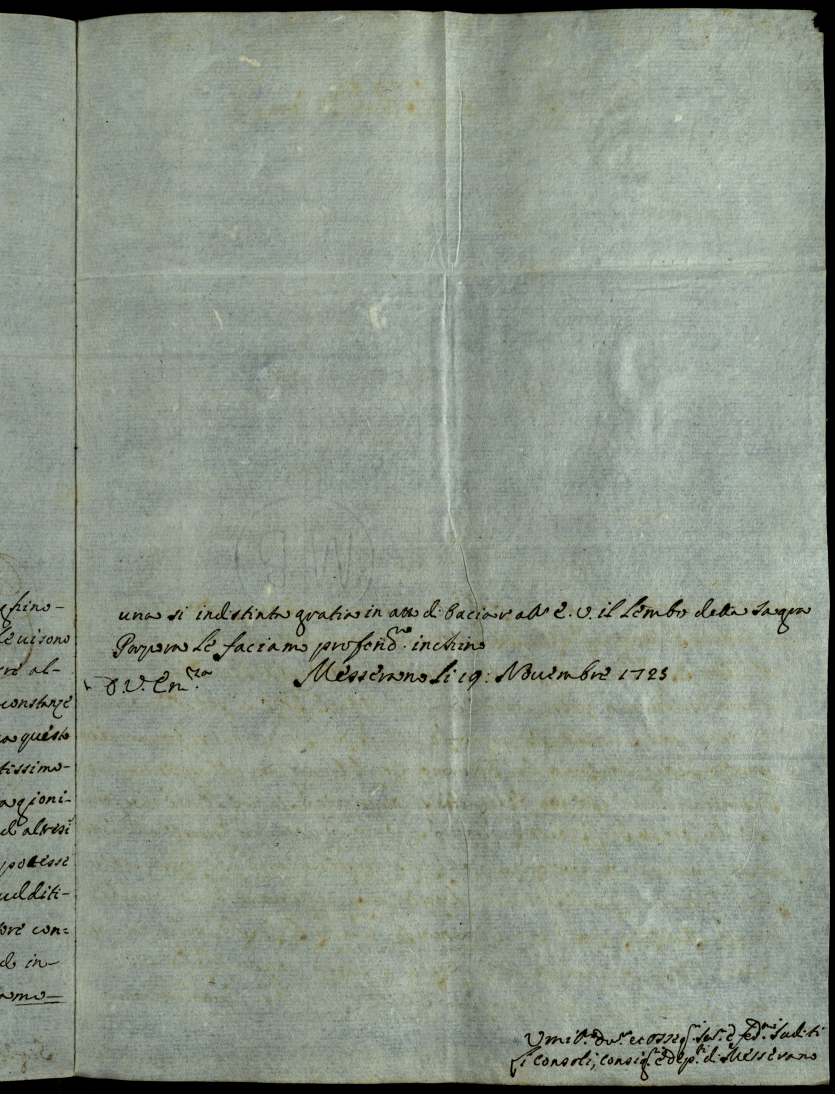 ghino-
le ui sono
ere al-
constanze
a questo
tissimo-
agioni-
d altresi
potesse
uddití-
ore con=
d in-
amo-
una si indistinta gratia in atto di baciar all' E. V. il Lembo della Sagra
Porpora Le faciamo profond.ma inchino
D. V. Em.za Messerano li 19: Nouembre 1723
Umil.mi Deu.mi et osseq.mi Ser.i e fed.mi Suditi
li Consoli, Consig.ri e Dep.ti di Messerano